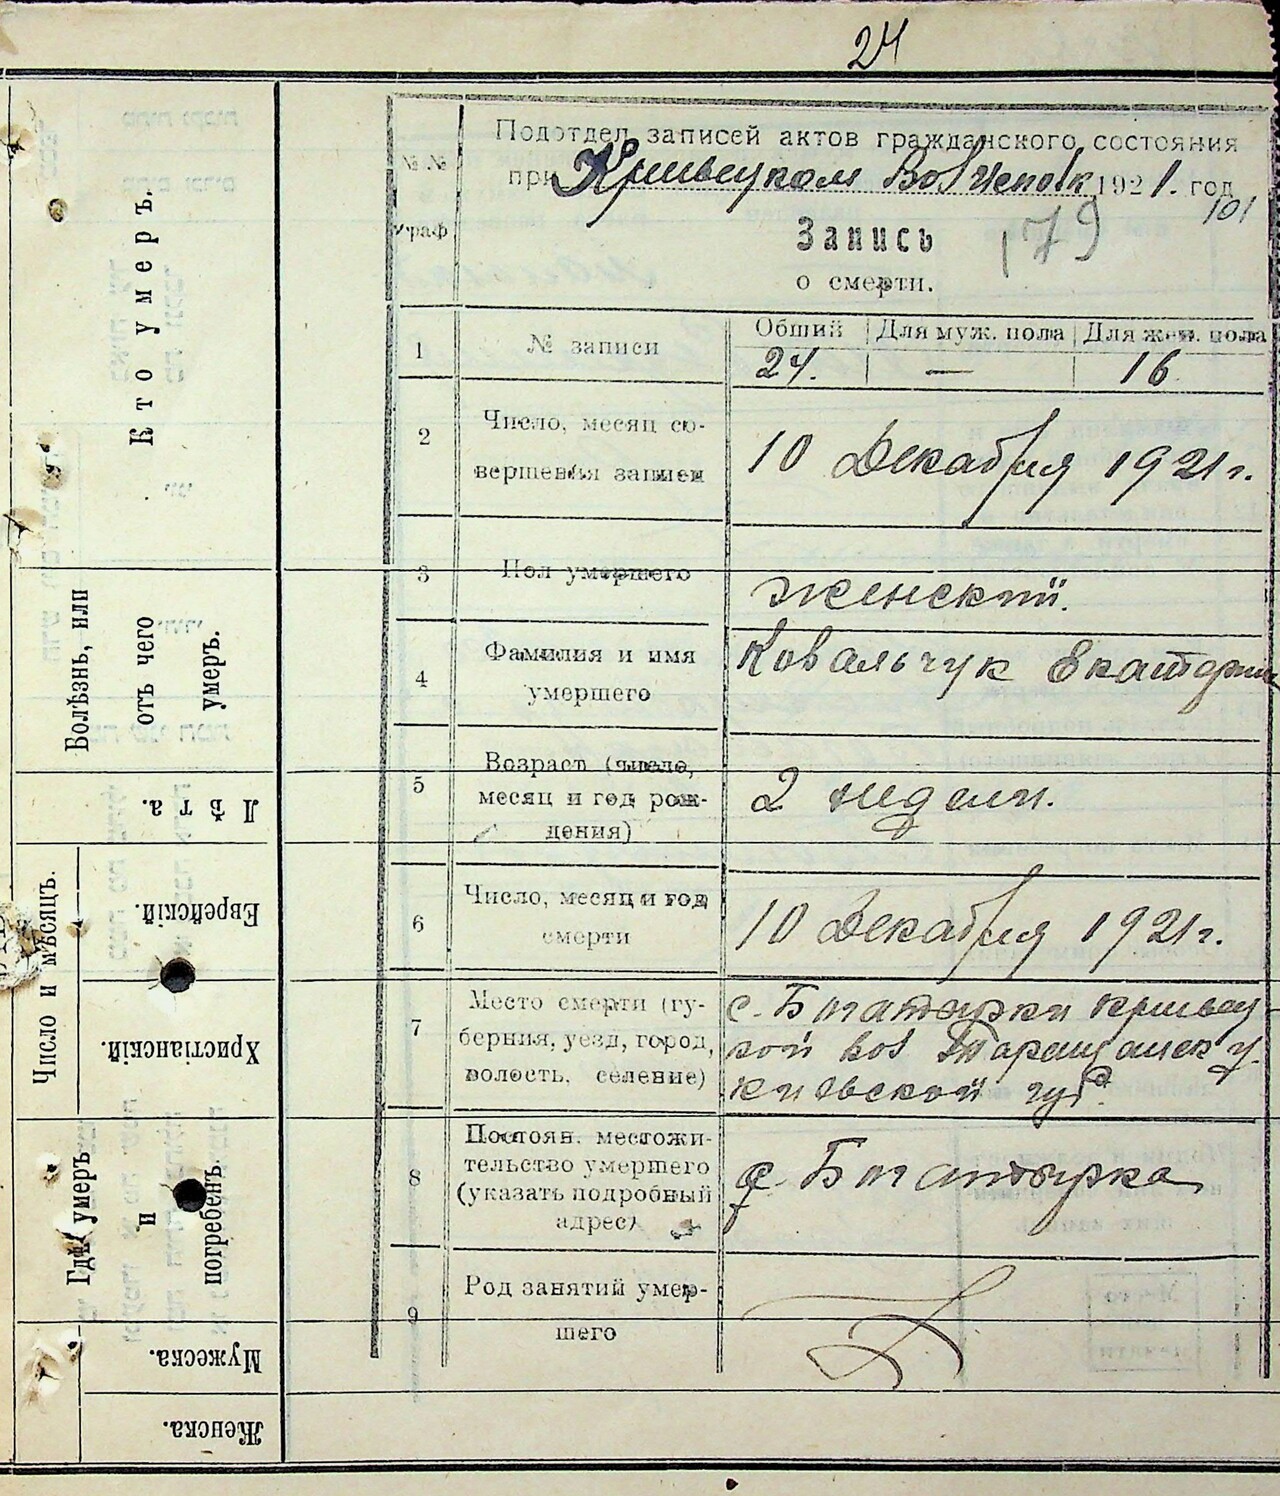 24
Подотдел записей актов гражданского состояния
при Кривецком Вол Исполк 1921. год
101
179
Запись
о смерти.
№№
граф
1 № записи Общий Для муж. пола Для жен. пола
24. — 16
2 Число, месяц со-
вершения записи
10 Декабря 1921 г.
3 Пол умершего
женский.
4 Фамилия и имя
умершего
Ковальчук Екатерин
5 Возраст (число,
месяц и год рож-
дения)
2 недели.
6 Число, месяц и год
смерти
10 Декабря 1921 г.
7 Место смерти (гу-
берния, уезд, город,
волость, селение)
с. Богатырки Кривец
кой вол Таращанск у.
Киевской губ.
8 Постоян. местожи-
тельство умершего
(указать подробный
адрес)
с. Богатырка
9 Род занятий умер-
шего
Кто умеръ.
Болѣзнь, или
отъ чего
умеръ.
Лѣта.
Число и мѣсяцъ.
Еврейскій.
Христіанскій.
Гдѣ умеръ
и
погребенъ.
Мужеска.
Женска.